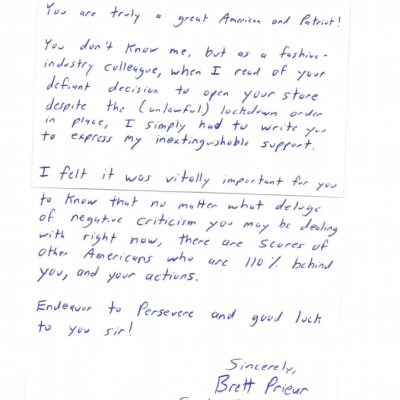 You are truly a great American and Patriot!
You don't know me, but as a fashion-
industry colleague, when I read of your
defiant decision to open your store
despite the (unlawful) lockdown order
in place, I simply had to write you
to express my inextinguishable support.
I felt it was vitally important for you
to know that no matter what deluge
of negative criticism you may be dealing
with right now, there are scores of
other Americans who are 110% behind
you, and your actions.
Endeavor to Persevere and good luck
to you sir!
Sincerely,
Brett Prieur